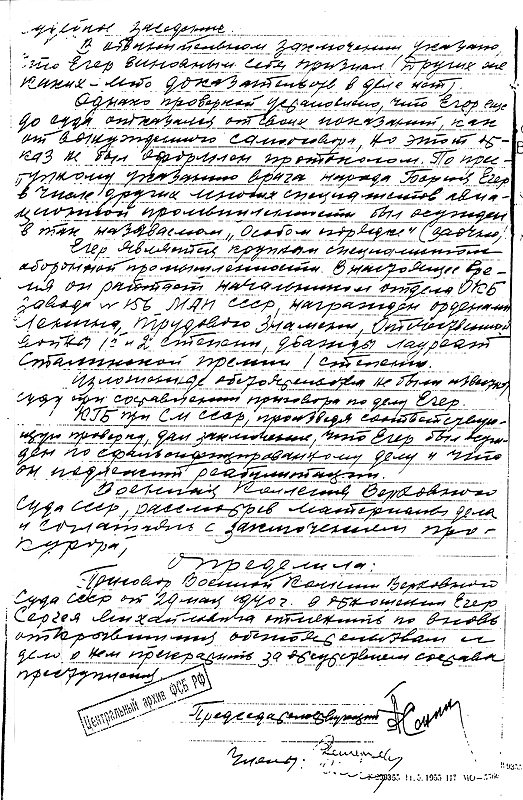 учебное заведение.
В обвинительном заключении указано,
что Егер виновным себя признал (других же
каких-либо доказательств в деле нет)
Однако проверкой установлено, что Егер еще
до суда отказался от своих показаний, как
от вынужденного самооговора, но этот от-
каз не был оформлен протоколом. По пре-
ступному указанию врага народа Берия Егер
в числе других многих специалистов авиа-
ционной промышленности был осужден
в так называемом "особом порядке" (заочно)
Егер является крупным специалистом
оборонной промышленности. В настоящее вре-
мя он работает начальником отдела ОКБ
завода № 156 МАП СССР, награжден орденами
Ленина, Трудового Знамени, Отечественной
войны 1й и 2 степени, дважды лауреат
Сталинской премии 1 степени.
Изложенные обстоятельства не были известны
суду при составлении приговора по делу Егер.
КГБ при СМ СССР, произведя соответствую-
щую проверку, дал заключение, что Егер был осуж-
ден по сфальсифицированному делу и что
он подлежит реабилитации.
Военная Коллегия Верховного
Суда СССР, рассмотрев материалы дела
и соглашаясь с заключением про-
курора,
определила:
Приговор Военной Коллегии Верховного
Суда СССР от 29 мая 1940 г. в отношении Егер
Сергея Михайловича отменить по вновь
открывшимся обстоятельствам и
дело о нем прекратить за отсутствием состава
преступления
Центральный архив ФСБ РФ
Председательствующий
Члены: